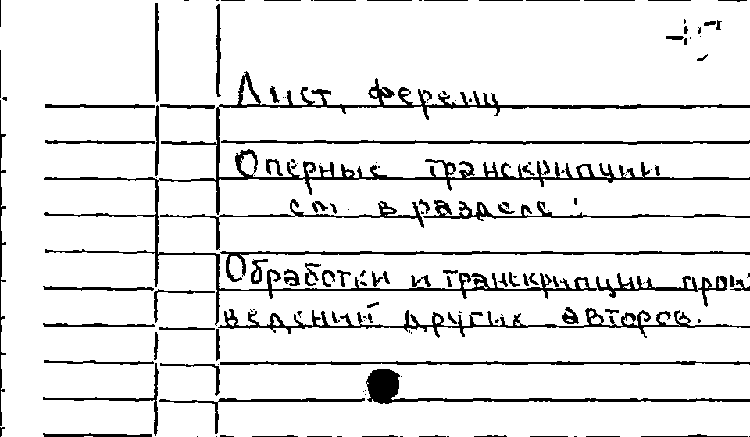 Лист, Ференц
Оперные транскрипции
см. в разделе:
Обработки и транскрипции произ
ведений других авторов.